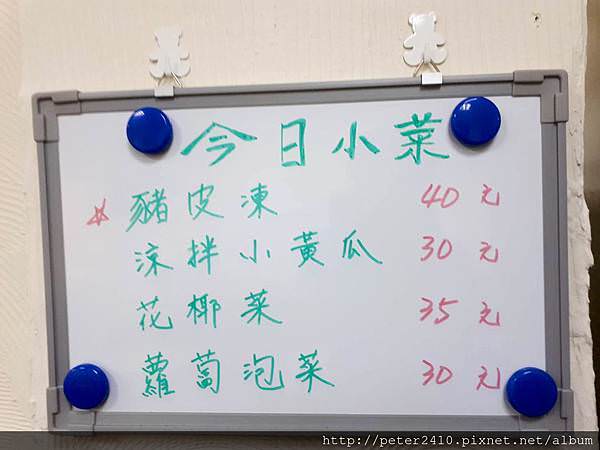 今日小菜
☆豬皮凍 40元
涼拌小黃瓜 30元
花椰菜 35元
蘿蔔泡菜 30元
http://peter2410.pixnet.net/album